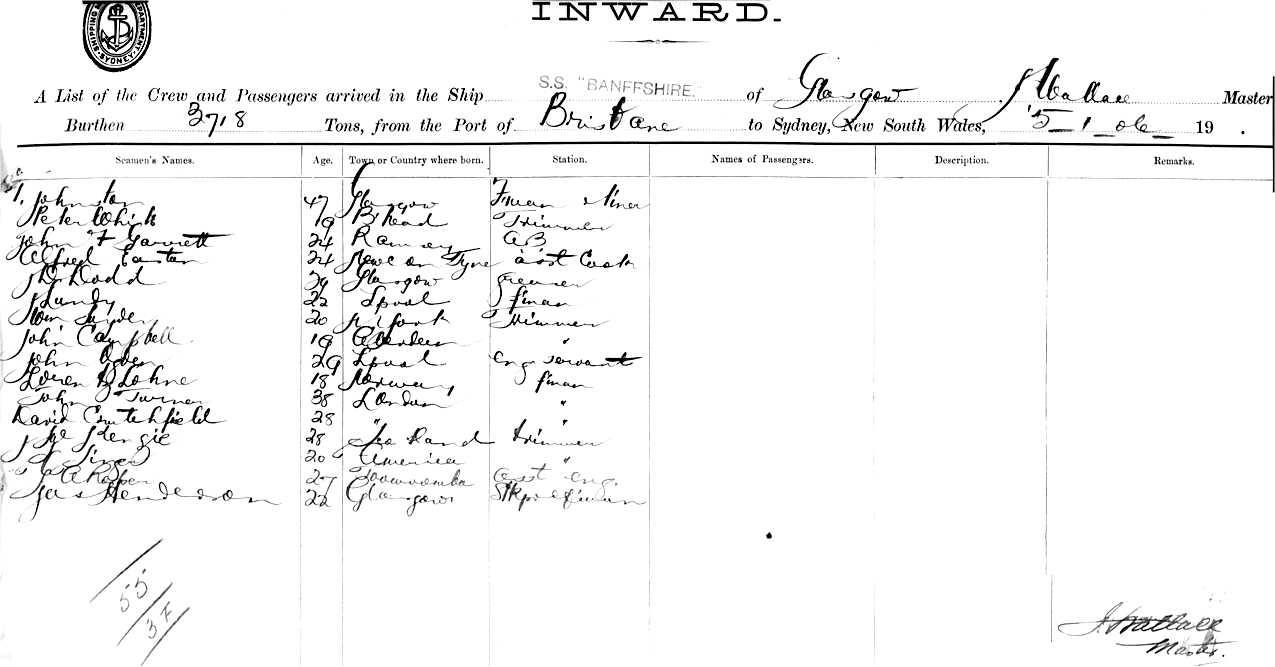 INWARD.
SHIPPING DEPARTMENT. SYDNEY
A List of the Crew and Passengers arrived in the Ship S.S. "BANFFSHIRE." of Glasgow. J Wallace Master
Burthen 3718 Tons, from the Port of Brisbane to Sydney, New South Wales, 5_1_06_ 19 .
Seamen's Names. Age. Town or Country where born. Station. Names of Passengers. Description. Remarks.
Johnston 47 Glasgow
Peter White 19 B'head Trimmer
John F Garrett 24 Ramsey AB
Alfred Easton 24 Newc on Tyne asst Cook
Dodd 29 Glasgow greaser
J Lundy 22 Lpool fiman
Wm Snyder 20 Trimmer
John Campbell 19 Aberdeen "
John Owen 29 Lpool eng servant
Lohne 18 Norway fiman
John Turner 38 London "
David Crutchfield 28 " "
28 trimmer
20 America "
27 Toowoomba asst eng.
Jas Henderson 22 Glasgow fiman
55
3F
J. Wallace
Master.